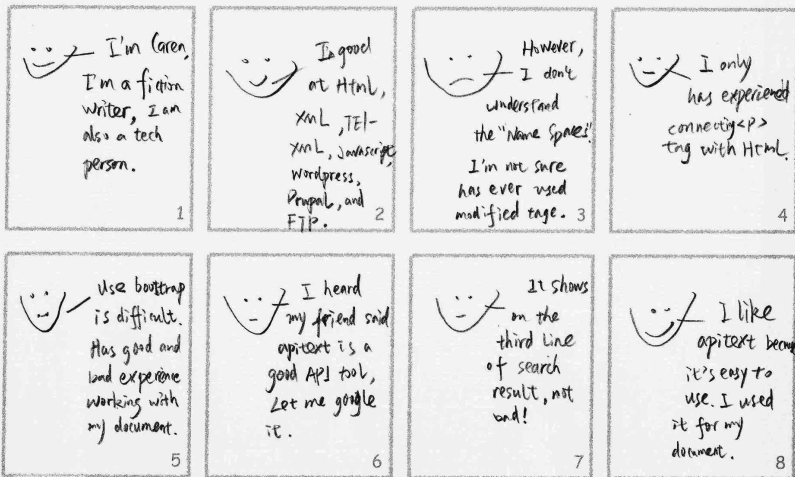 I'm Caren,
I'm a fiction
writer, I am
also a tech
person.
1
Is good
at Html,
XML, TEI-
XML, Javascript,
Wordpress,
Drupal, and
FTP.
2
However,
I don't
understand
the "Name Spaces".
I'm not sure
has ever used
modified tage.
3
I only
has experienced
connectig <P>
tag with HtmL.
4
Use bootstrap
is difficult.
Has good and
bad experience
working with
my document.
5
I heard
my friend said
apitext is a
good API tool,
Let me google
it.
6
It shows
on the
third line
of search
result, not
bad!
7
I like
apitext becau
it's easy to
use. I used
it for my
document.
8